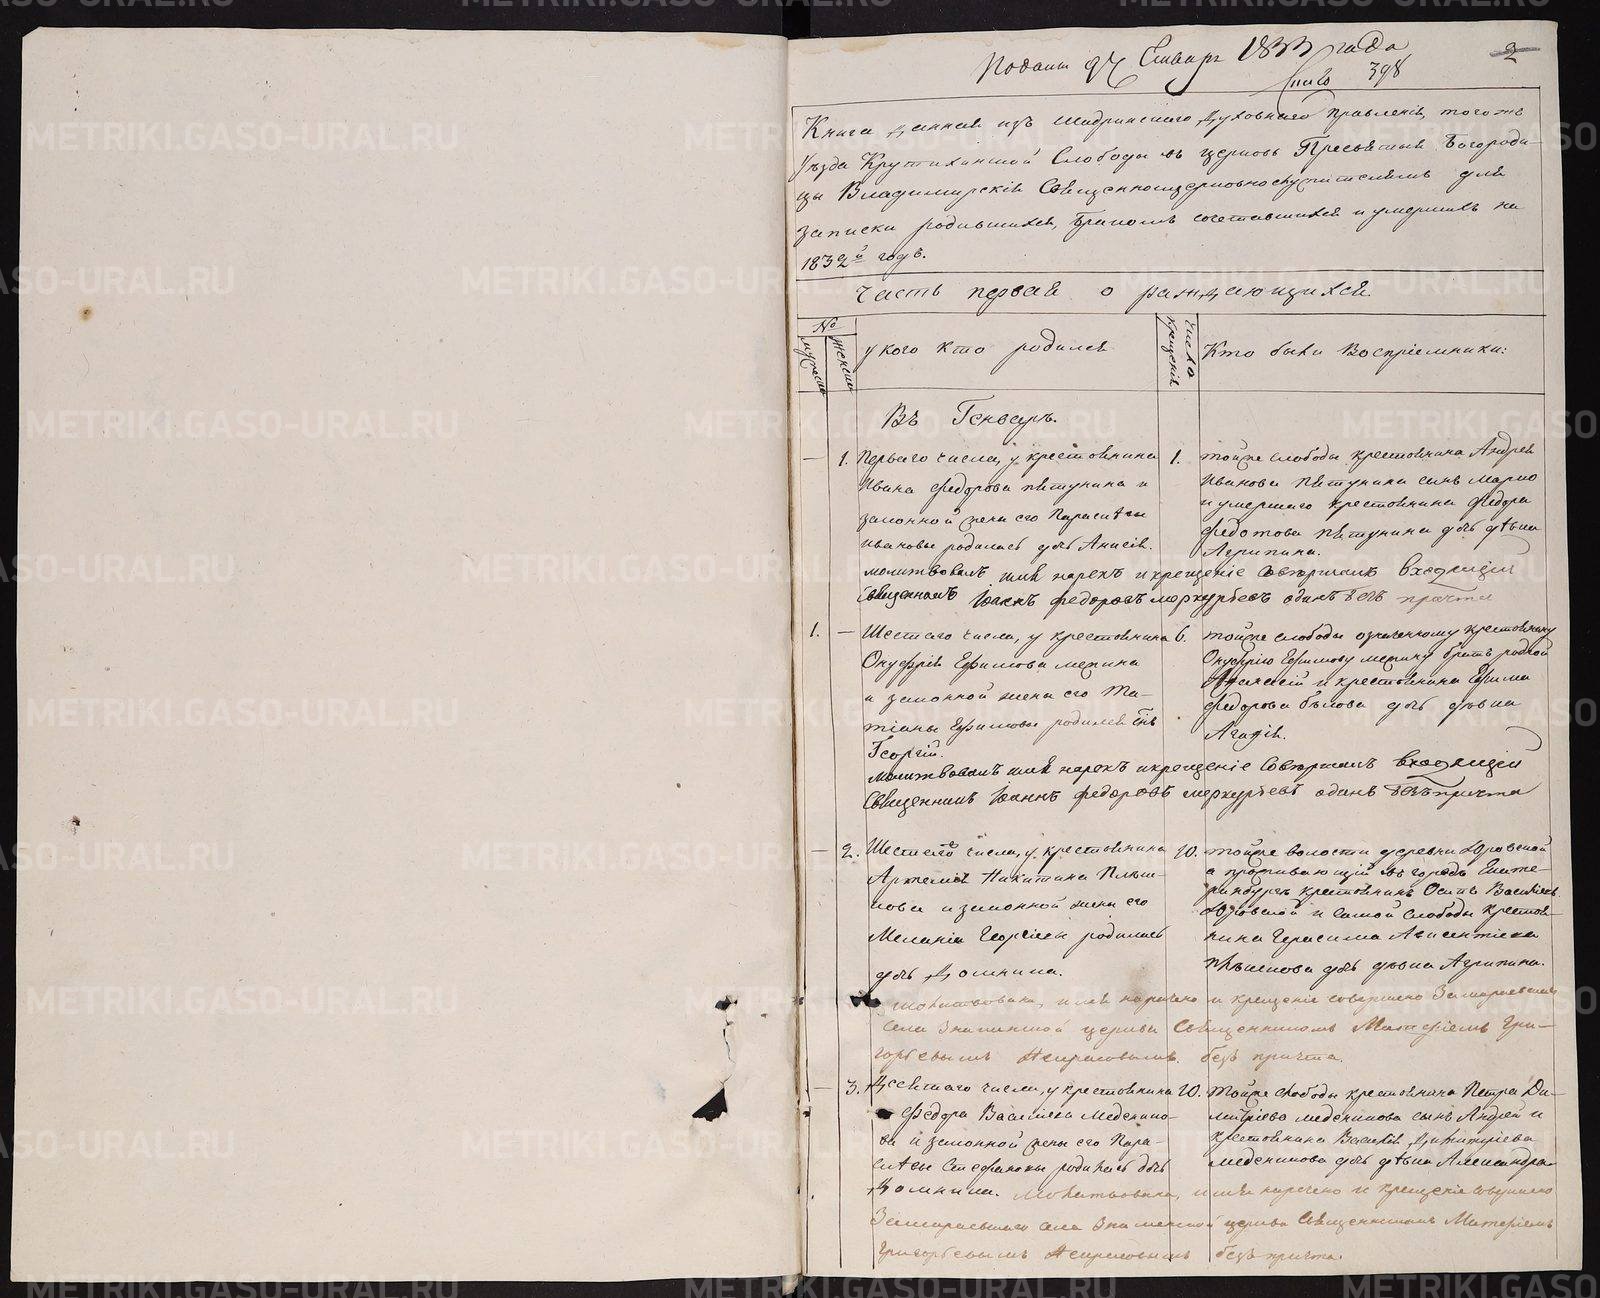 Подана 9/4 Генваря 1833 года
398
2
Книга данная изъ Шадринскаго Духовнаго Правленія, тогожъ
уѣзда Крутихинской Слободы въ церковь Пресвятыя Богороди-
цы Владимирскія Священноцерковнослужителямъ для
записки родившихся, бракомъ сочетавшихся и умершихъ на
1832й годъ.
Часть первая о раждающихся.
№
мужеска
женска
у кого кто родился
число крещенія
Кто были Воспріемники:
Въ Генваръ.
— 1. Перваго числа, у крестьянина
Ивана Федорова Пѣтунина и
законной жены его Параскѣвы
Ивановы родилась дочь Анисія.
1. тойже слободы крестьянина Андрея
Иванова Пѣтунина сынъ Марко
и умершаго крестьянина Федора
Федотова Пѣтунина дочь дѣвка
Агрипина.
молитвовалъ имя нарекъ и крещеніе Совершалъ входящій
Священникъ Іоаннъ Федоровъ Меркурьевъ одинъ безъ причта
1. — Шестаго числа, у крестьянина
Онуфрія Ефимова
и законной жены его Та-
тіаны Ефимовы родился сынъ
Георгій.
6. тойже слободы означенному крестьянину
Онуфрію Ефимову братъ родной
и крестьянина Ефима
Федорова Бѣлова дочь дѣвка
Агафія.
молитвовалъ имя нарекъ и крещеніе Совершалъ входящій
Священникъ Іоаннъ Федоровъ Меркурьевъ одинъ безъ причта
— 2. Шестаго числа, у крестьянина
Артемія Никитина
и законной жены его
Меланіи Георгіевы родилась
дочь Домнина.
10. тойже волости деревни
а проживающій въ городѣ Екате-
ринбургѣ крестьянинъ Осипъ Васильевъ
и самой Слободы крестья-
нина Герасима
дочь дѣвка Агрипина.
молитвована, имя наречено и крещеніе совершено Замараевскаго
села Знаменской церкви Священникомъ Матфіемъ Гри-
горьевымъ Некрасовымъ. безъ причта.
— 3. Десятаго числа, у крестьянина
Федора Васильева Меденико-
ва и законной жены его Пара-
скѣвы Стефановы родилась дочь
Домнина.
10. Тойже слободы крестьянина Петра Ди-
митріева Меденикова сынъ Андрей и
крестьянина Василія Димитріева
Меденикова дочь дѣвка Александра
молитвована, имя наречено и крещеніе совершено
Замараевскаго села Знаменской церкви Священникомъ Матфіемъ
Григорьевымъ Некрасовымъ безъ причта.
METRIKI.GASO-URAL.RU